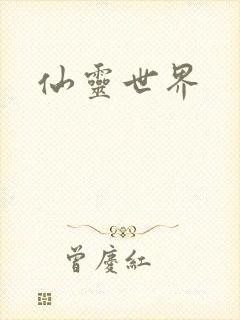 仙靈世界
曾慶紅